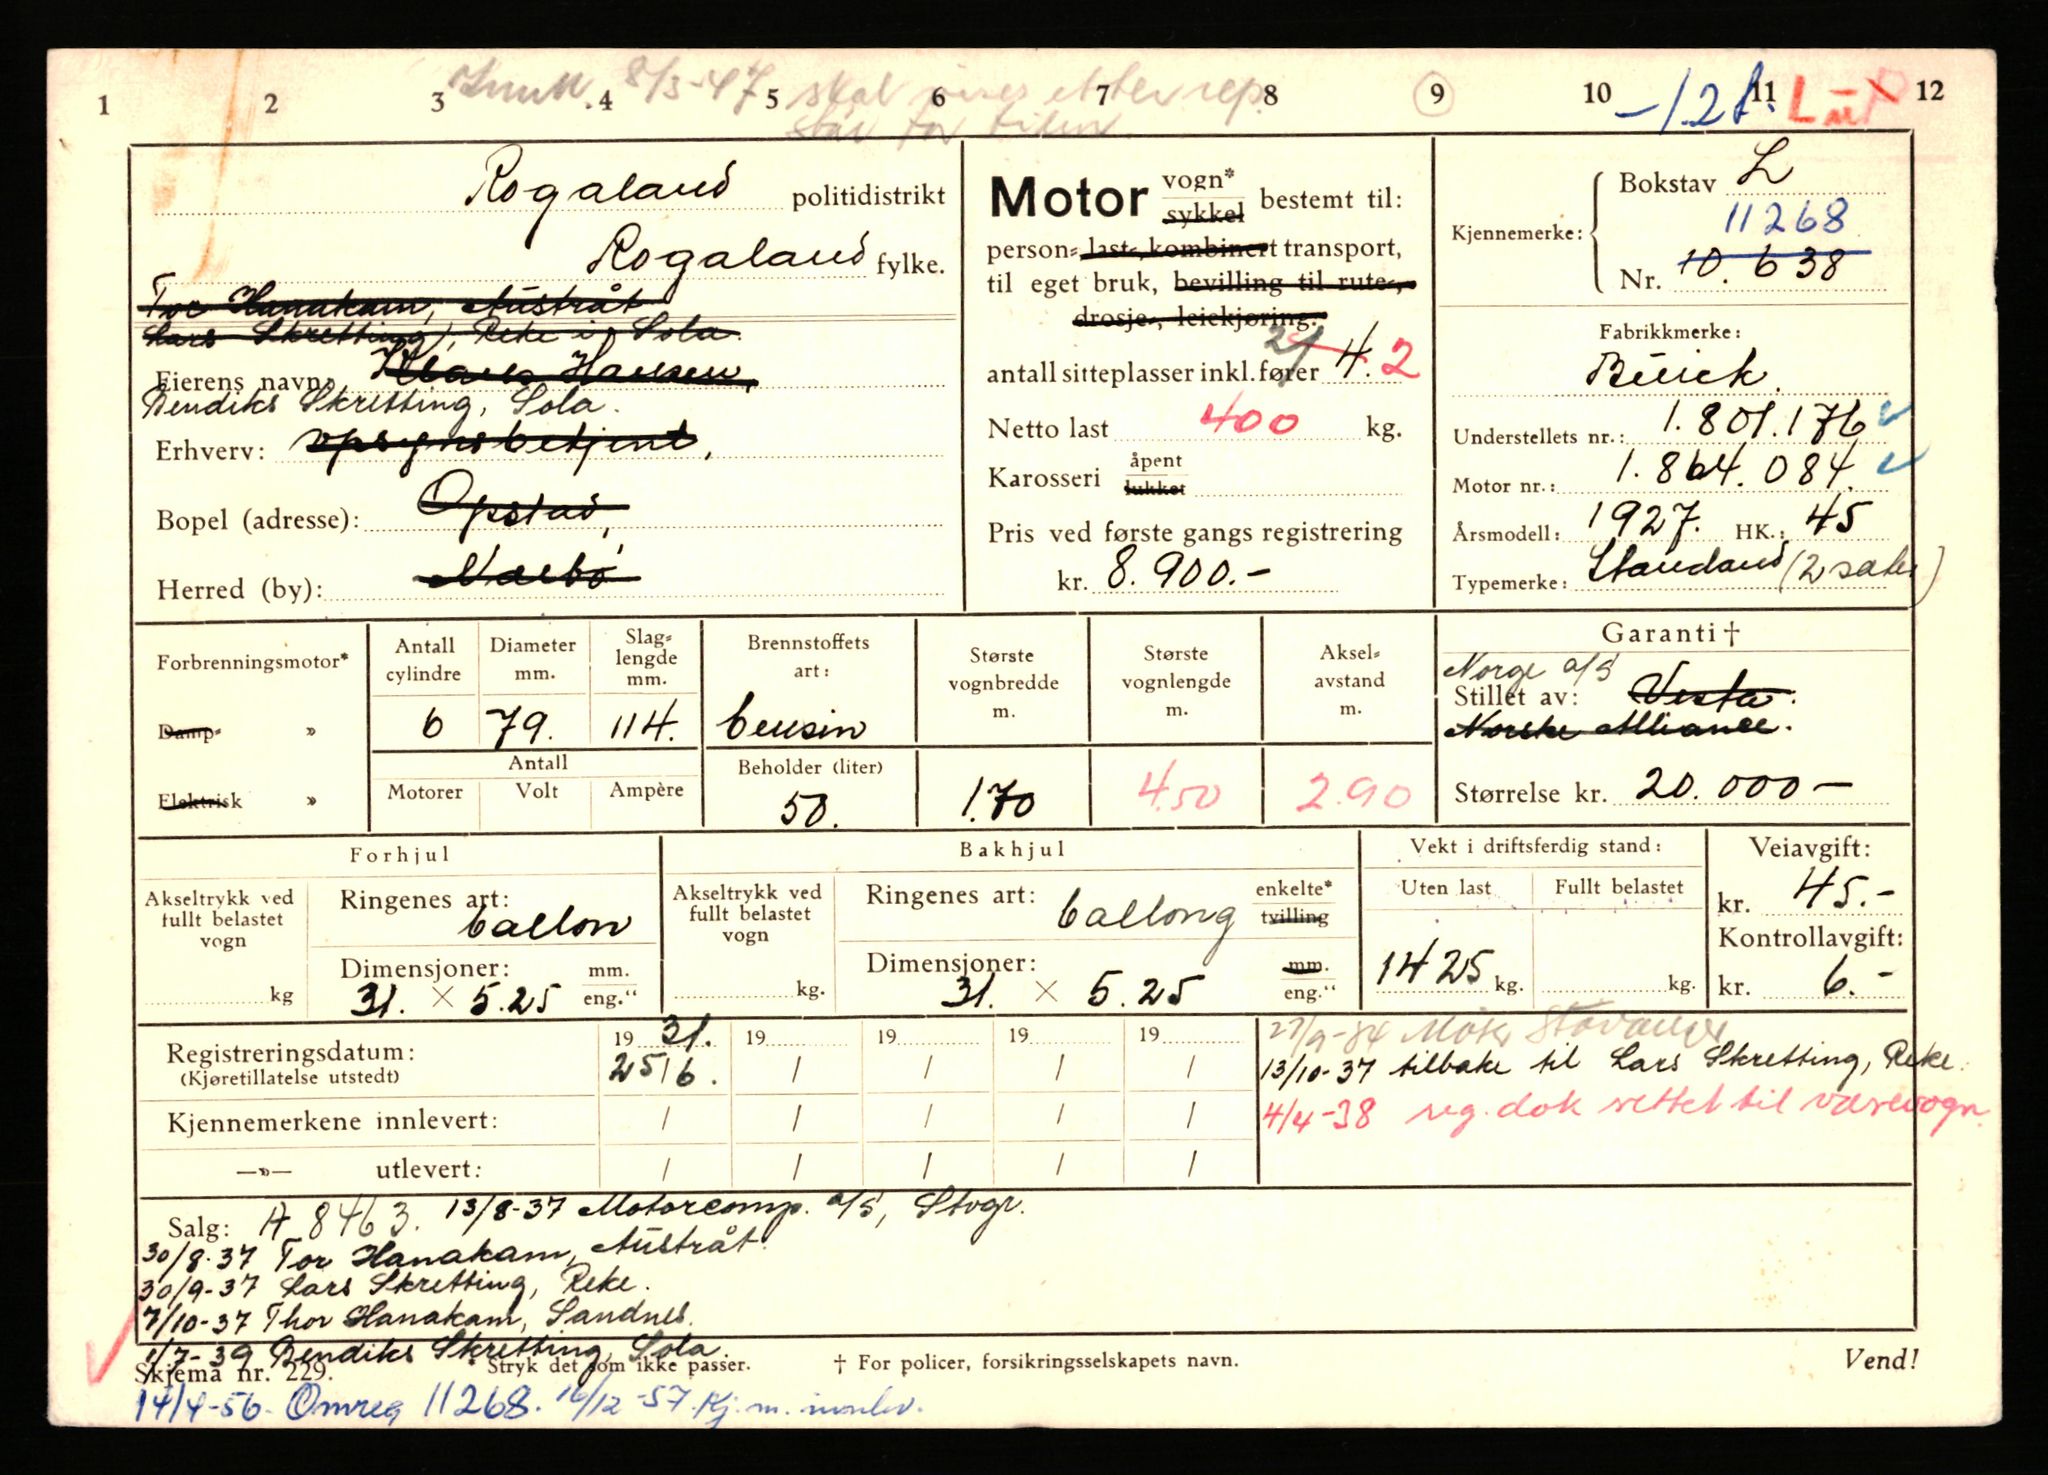 8/3-47 skal etter rep.
1 2 3 4 5 6 7 8 9 10 11 12
Rogaland politidistrikt
Rogaland fylke.
Tor Hanakam, Austråt
Lars Skretting, Reke i Sola.
Eierens navn: Hansen,
Bendiks Skretting, Sola.
Erhverv: opsynsbetjent,
Bopel (adresse): Opstad,
Herred (by): Nærbø
Motor vogn* sykkel bestemt til:
person-, last-, kombinert transport,
til eget bruk, bevilling til rute-,
drosje-, leiekjøring.
antall sitteplasser inkl. fører 4. 2
Netto last 400 kg.
Karosseri åpent lukket
Pris ved første gangs registrering
kr. 8.900.-
Kjennemerke: Bokstav L
11268
Nr. 10.638
Fabrikkmerke:
Buick.
Understellets nr.: 1.801.176
Motor nr.: 1.864.084.
Årsmodell: 1927. HK.: 45
Typemerke: Standard (2 sæter)
Forbrenningsmotor*
Damp- »
Elektrisk »
Antall cylindre 6
Diameter mm. 79.
Slaglengde mm. 114.
Antall
Motorer Volt Ampère
Brennstoffets art: bensin
Beholder (liter) 50.
Største vognbredde m. 1.70
Største vognlengde m. 4.50
Akselavstand m. 2.90
Garanti †
Norge a/s
Stillet av: Vesta.
Norske Alliance.
Størrelse kr. 20.000-
Forhjul
Akseltrykk ved fullt belastet vogn kg
Ringenes art: ballon
Dimensjoner: 31. × 5.25 mm. eng."
Bakhjul
Akseltrykk ved fullt belastet vogn kg.
Ringenes art: ballong enkelte* tvilling
Dimensjoner: 31. × 5.25 mm. eng."
Vekt i driftsferdig stand:
Uten last Fullt belastet
1425 kg. kg.
Veiavgift:
kr. 45.-
Kontrollavgift:
kr. 6.-
19 31. 19 19 19 19
Registreringsdatum: 25/6. / / / /
(Kjøretillatelse utstedt)
Kjennemerkene innlevert: / / / / /
—»— utlevert: / / / / /
Stavanger
13/10-37 tilbake til Lars Skretting, Reke.
4/4-38 reg. dok rettet til varevogn.
Salg: A 8463. 13/8-37 Motorcomp. a/s, Stvgr.
30/8-37 Tor Hanakam, Austråt.
30/9-37 Lars Skretting, Reke.
7/10-37 Thor Hanakam, Sandnes.
1/7-39 Bendiks Skretting, Sola.
Skjema nr. 229. * Stryk det som ikke passer. † For policer, forsikringsselskapets navn. Vend!
14/4-56. Omreg 11268. 16/12-57. Kj. m. innlev.